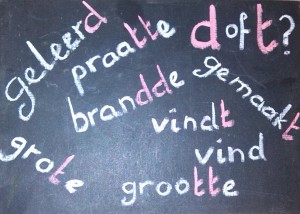 geleerd
praatte
d of t?
brandde
gemaakt
vindt
vind
grote
grootte